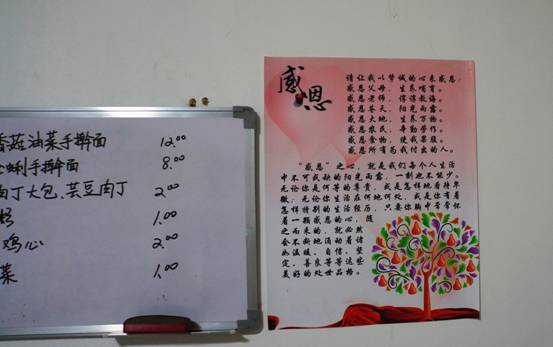 香菇油菜手擀面 12.00
蜊手擀面 8.00
肉丁大包、芸豆肉丁 2.00
1.00
鸡心 2.00
菜 1.00
感恩
请让我以挚诚的心来感恩:
感恩父母,生养哺育。
感恩老师,谆谆教诲。
感恩苍天,阳光雨露。
感恩大地,生养万物。
感恩农民,辛勤劳作。
感恩食物,使我果腹。
感恩所有为我付出的人。
“感恩”之心,就是我们每个人生活
中不可或缺的阳光雨露,一刻也不能少。
无论你是何等的尊贵,或是怎样地看待卑
微;无论你生活在何地何处,或是你有着
怎样特别的生活经历,只要你胸中常常怀
着一颗感恩的心,随
之而来的,就必然
会不断地涌动着诸
如温暖、自信、坚
定、善良等等这些
美好的处世品格。